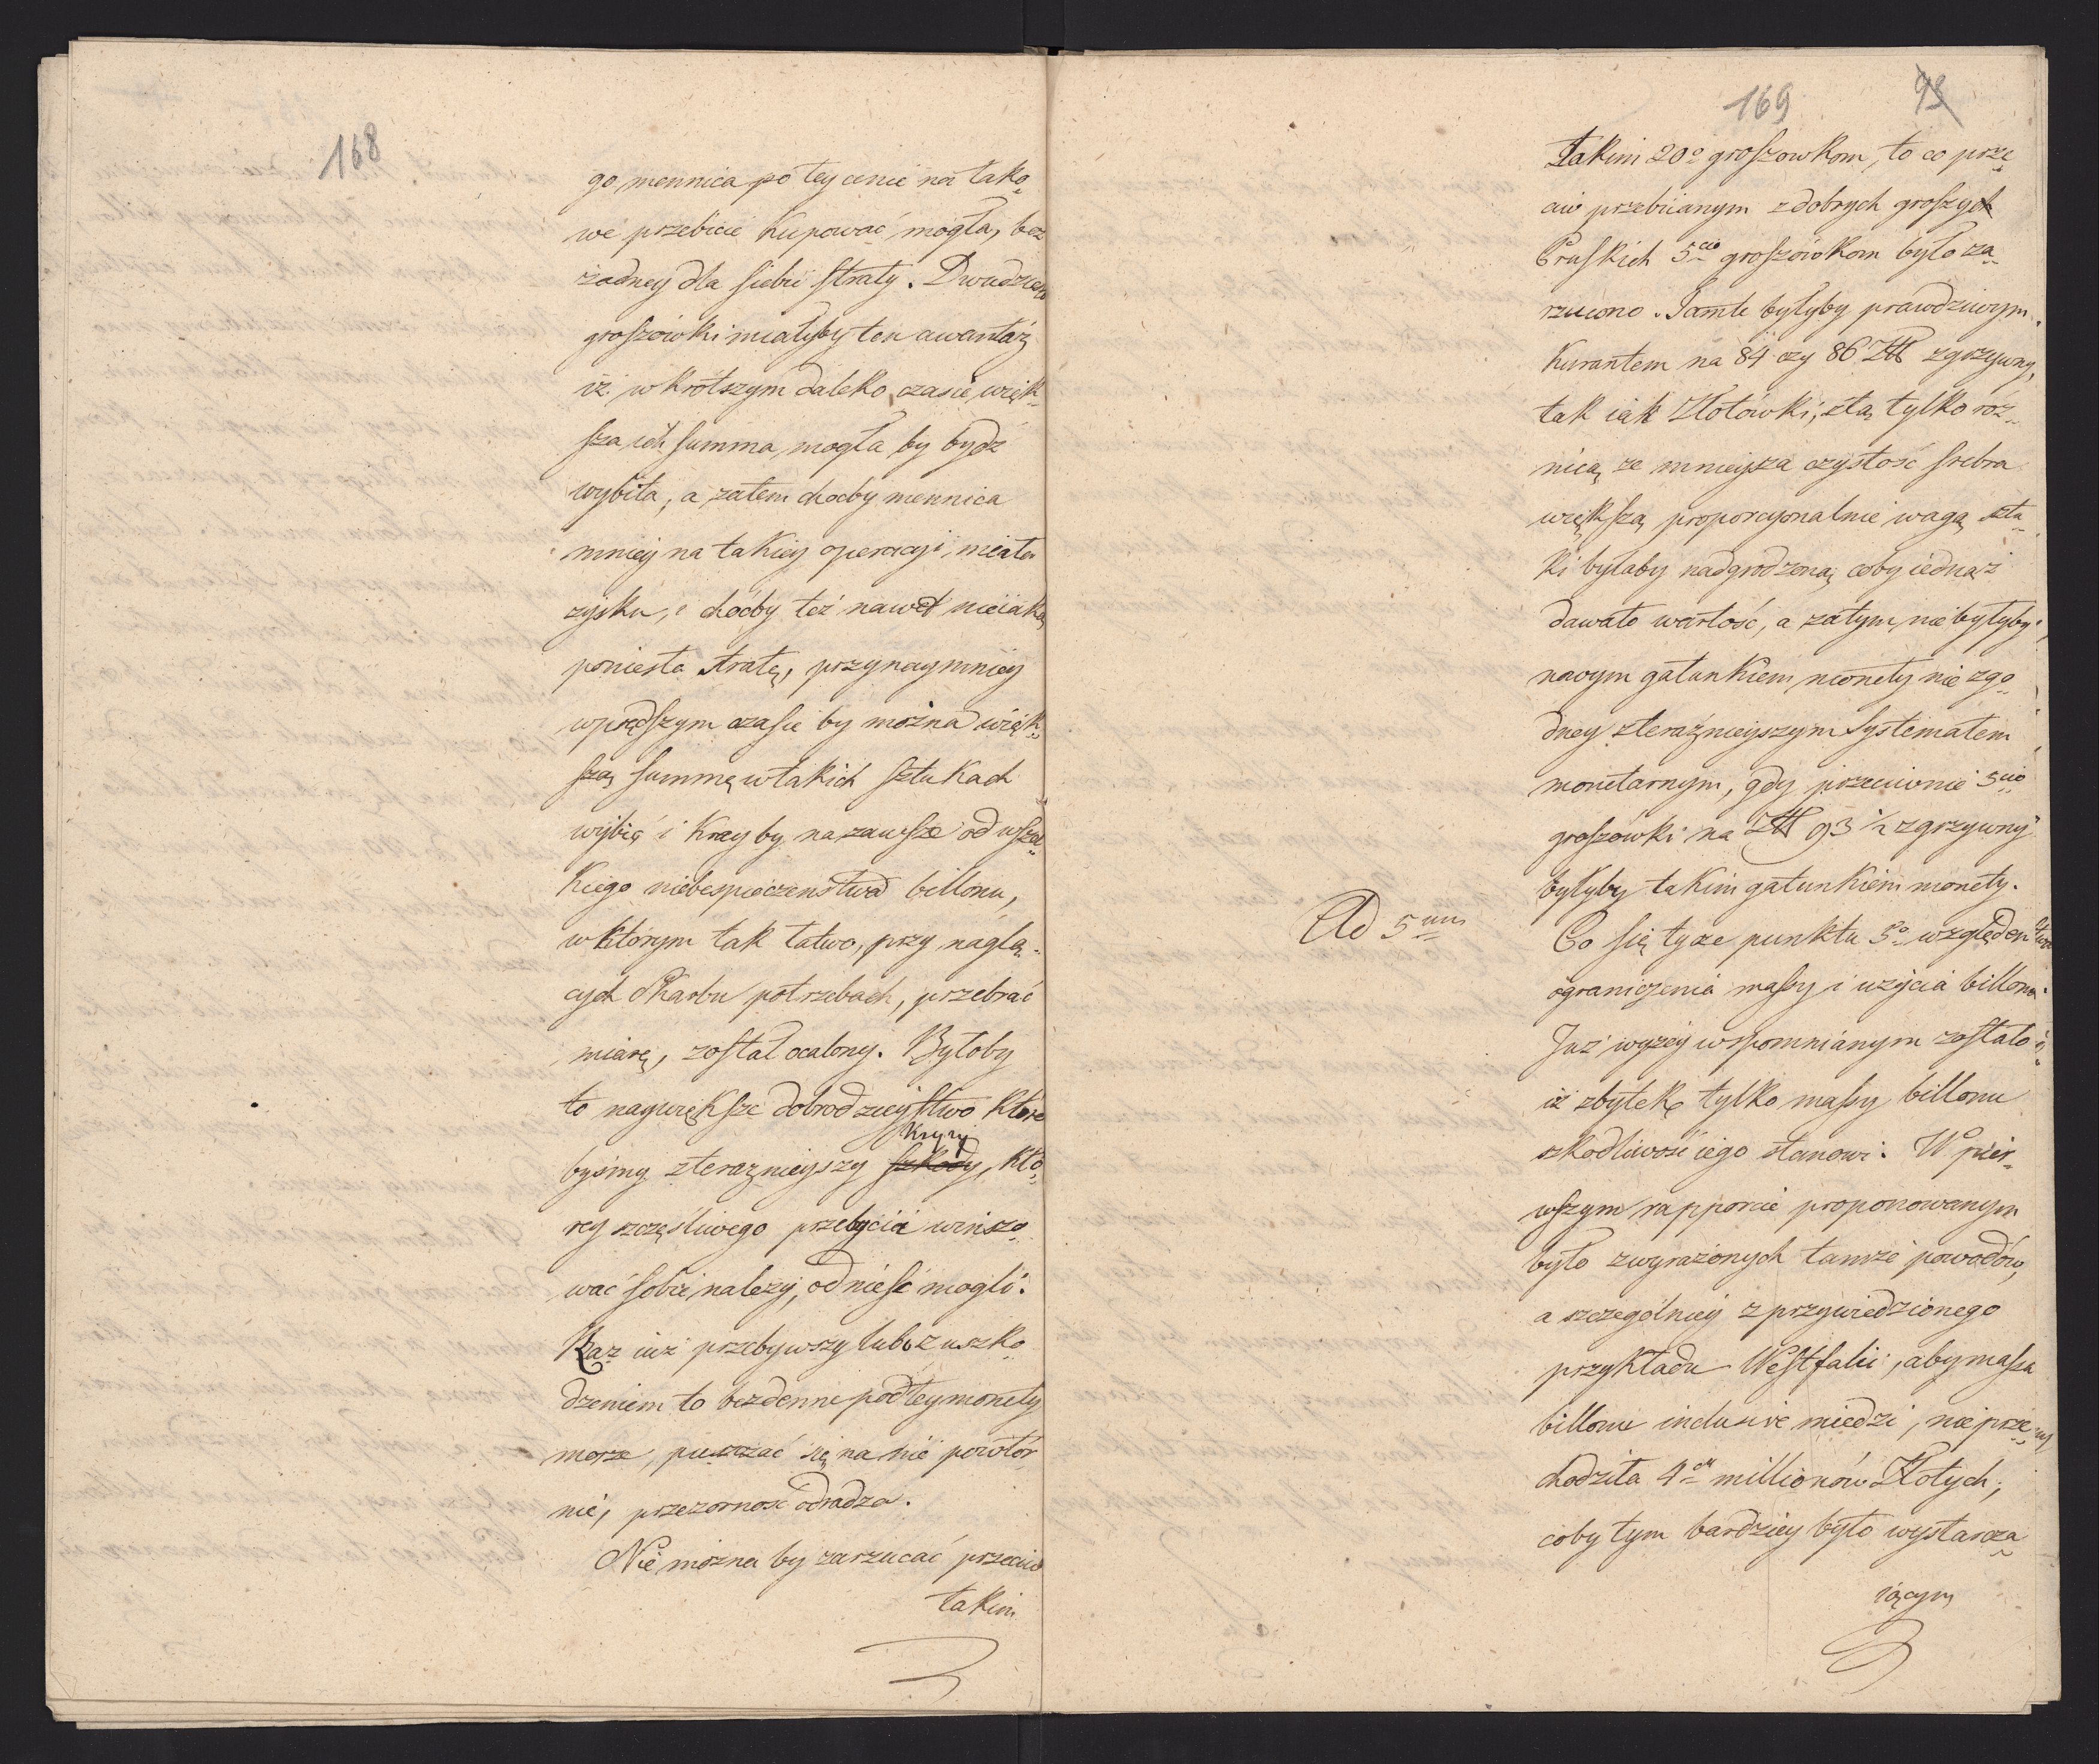 168
go mennica po tey cenie na tako„
we przebicie kupować mogła, bez
żadney dla siebie straty. Dwudziesto
groszówki miałyby ten awantaż
iż w krótszym daleko czasie, więk„
sza ich summa mogła by bydź
wybita, a zatem choćby mennica
mniey na takiey operacyi miała
zysku, choćby też nawet nieiaką
poniesła stratę, przynaymniey
w prędszym czasie by można więk„
szą summę w takich sztukach
wybić i kray by na zawsze od wszel„
kiego niebespieczenstwa billonu,
w którym tak łatwo, przy naglą„
cych Skarbu potrzebach, przebrać
miarę, został ocalony. Byłoby
to naywiększe dobrodzieystwo które
kryzy
byśmy z teraznieyszy szkody, któ„
rey szczęśliwego przebycia winszo„
wać sobie należy, odnieść mogli.
Raz iuż przebywszy lubo z uszko„
dzeniem to bezdenne podłey monety
morze, puszczać się na nie powtór
nie, przezorność odradza.
Nie można by zarzucać przeciw
takim
169
93
takim 20º groszowkom, to co prze„
ciw przebiianym z dobrych groszych
Pruskich 5cio groszówkom było za„
rzucono. Tamte byłyby prawdziwym
kurantem na 84 czy 86 Zł zgrzywny,
tak iak Złotówki, z tą tylko róż„
nicą ze mnieysza czystość srebra
większą proporcyonalnie wagą sztu„
ki byłaby nadgrodzoną coby iednąż
dawało wartość, a zatym nie byłyby
nowym gatunkiem monety nie zgo„
dney z teraźnieyszym Systematem
monetarnym, gdy przeciwnie 5cio
groszówki na Zł 93 1/2 zgrzywny
byłyby takim gatunkiem monety.
Ad 5um
Co się tycze punktu 5º względem
ograniczenia massy i użycia billonu.
Juz wyżey wspomnianym zostało
iż zbytek tylko massy billonu
szkodliwość iego stanowi. W pier„
wszym rapporcie proponowanym
było z wyrażonych tamże powodów,
a szczególniey z przywiedzionego
przykładu Westfalii, aby massa
billonu inclusive miedzi, nie prze„
chodziła 4ch millionów Złotych;
coby tym bardziey było wystarcza„
iącym